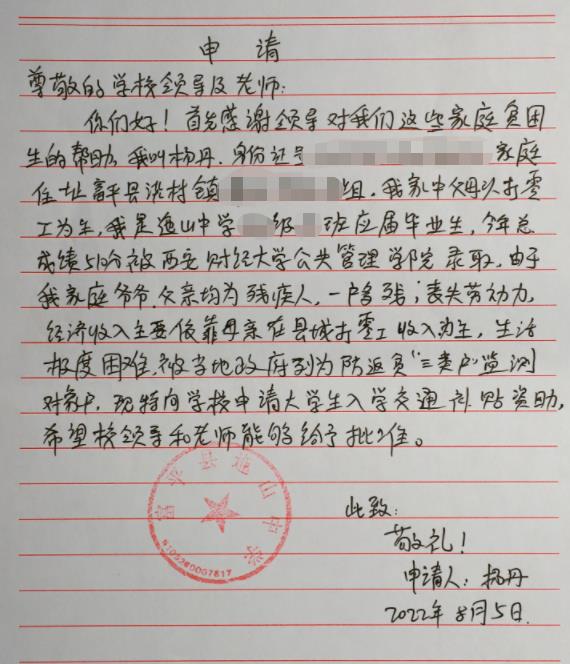 申 请
尊敬的学校领导及老师：
你们好！首先感谢领导对我们这些家庭贫困
生的帮助，我叫杨丹，身份证号 家庭
住址富平县淡村镇 组，我家中父母以打零
工为生，我是迤山中学 级 班应届毕业生，今年总
成绩519分被西安财经大学公共管理学院录取，由于
我家庭爷爷、父亲均为残疾人，一户多残；丧失劳动力，
经济收入主要依靠母亲在县城打零工收入为主，生活
极度困难，被当地政府列为防返贫“三类户”监测
对象户，现特向学校申请大学生入学交通补贴资助，
希望校领导和老师能够给予批准。
富平县迤山中学
6105280007617
此致：
敬礼！
申请人：杨丹
2022年8月5日.